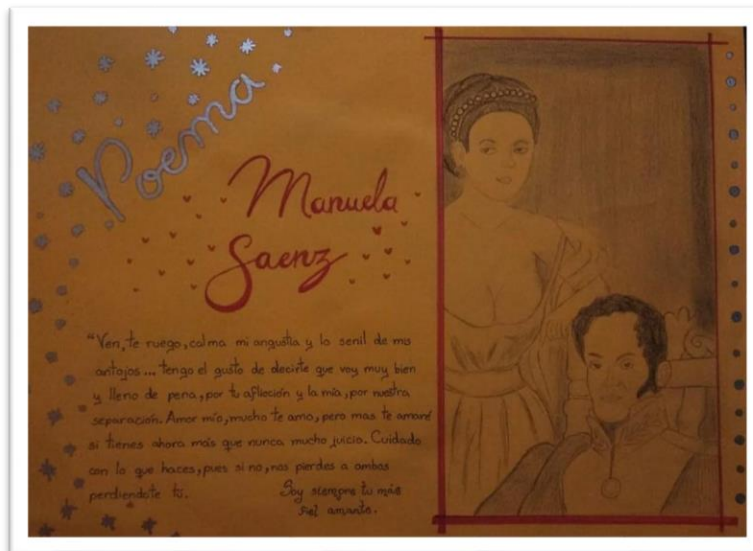 Poema
Manuela
Saenz
"Ven, te ruego, calma mi angustia y lo senil de mis
antojos... tengo el gusto de decirte que voy muy bien
y lleno de pena, por tu aflicción y la mía, por nuestra
separación. Amor mío, mucho te amo, pero mas te amaré
si tienes ahora más que nunca mucho juicio. Cuidado
con lo que haces, pues si no, nos pierdes a ambos
perdiendote tú.
Soy siempre tu más
fiel amante.